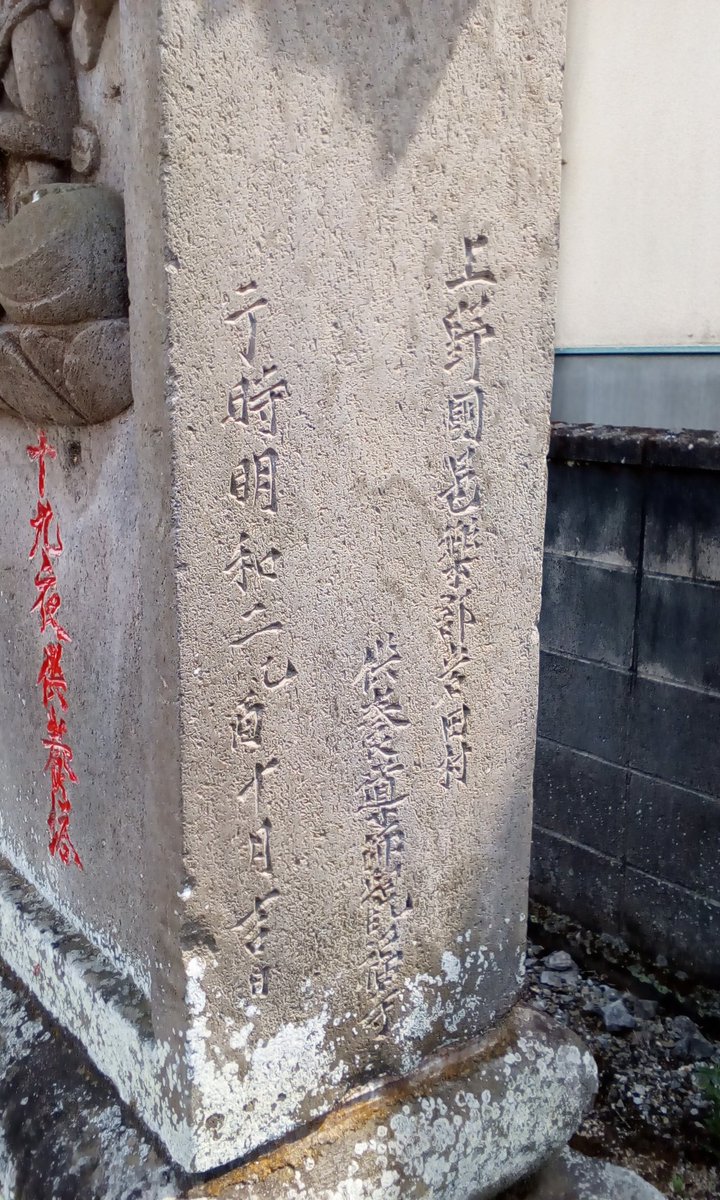 上野國邑樂郡吉田村
供養導師
于時明和二乙酉十月吉日
十九夜供養塔